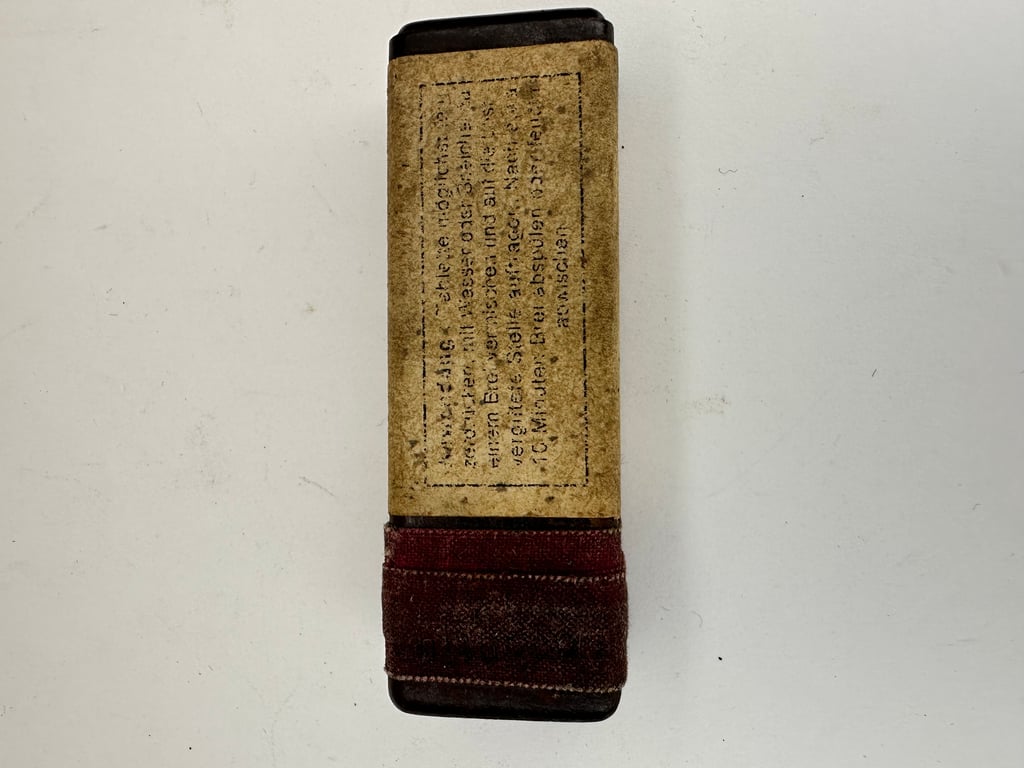 Anwendung: Tablette möglichst fein
zerdrücken, mit Wasser oder Speichel zu
einem Brei vermischen und auf die
vergiftete Stelle auftragen. Nach etwa
10 Minuten Brei abspülen oder feucht
abwischen